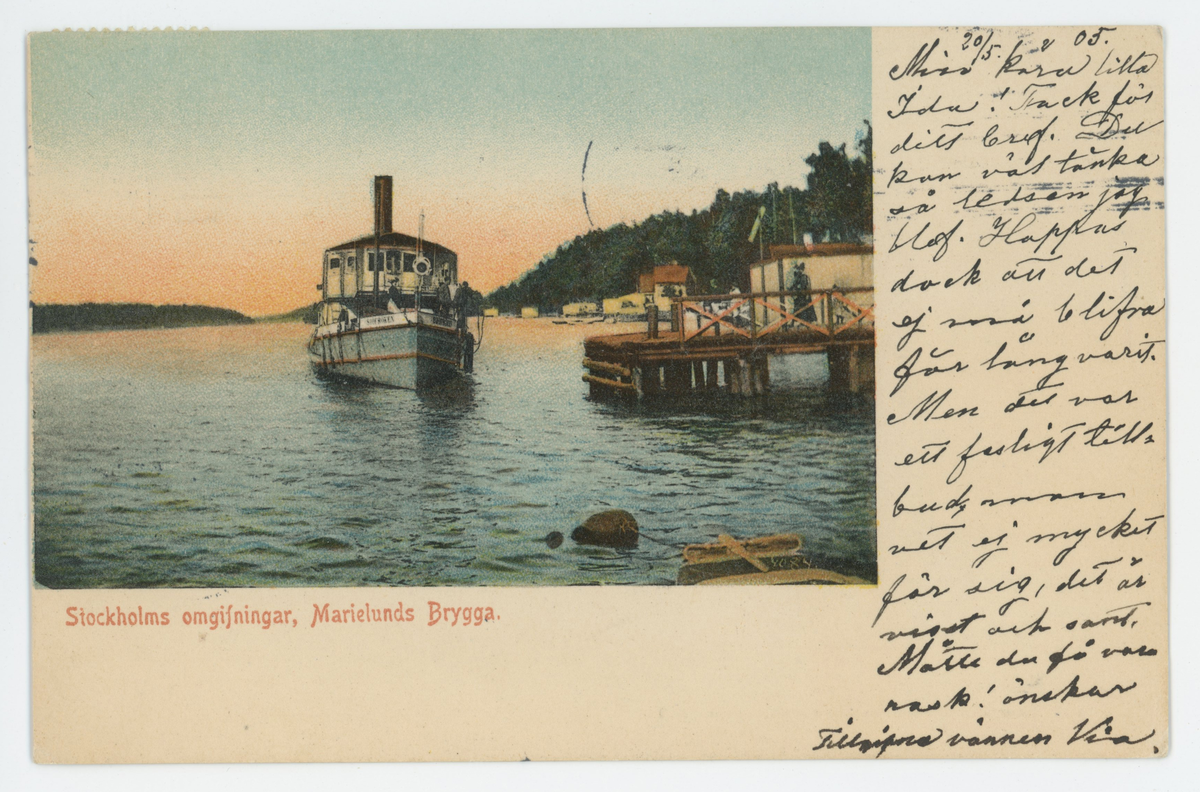 20/5. 05.
Min kära lilla
Ida! Tack för
ditt bref. Du
kan väl tänka
så ledsen jag
blef. Hoppas
dock att det
ej må blifva
för långvarit.
Men det var
ett fasligt till-
bud, man
vet ej mycket
för sig, det är
visst och sant.
Måtte du få vara
rask! önskar
Tillgifna vännen Via.
Stockholms omgifningar, Marielunds Brygga.